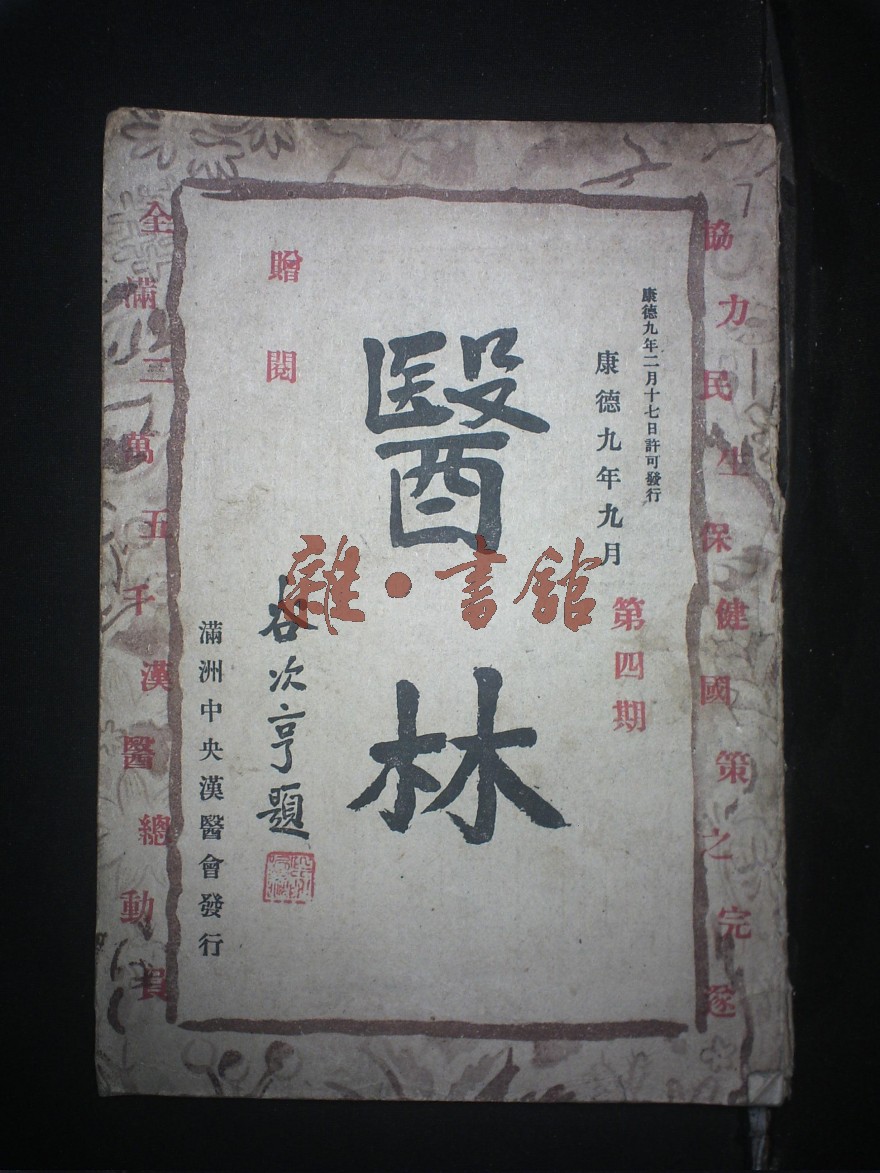 協力民生保健國策之完遂
康德九年二月十七日許可發行
康德九年九月
第四期
醫林
贈閱
谷次亨題
滿洲中央漢醫會發行
全滿二萬五千漢醫總動員
雜·書館